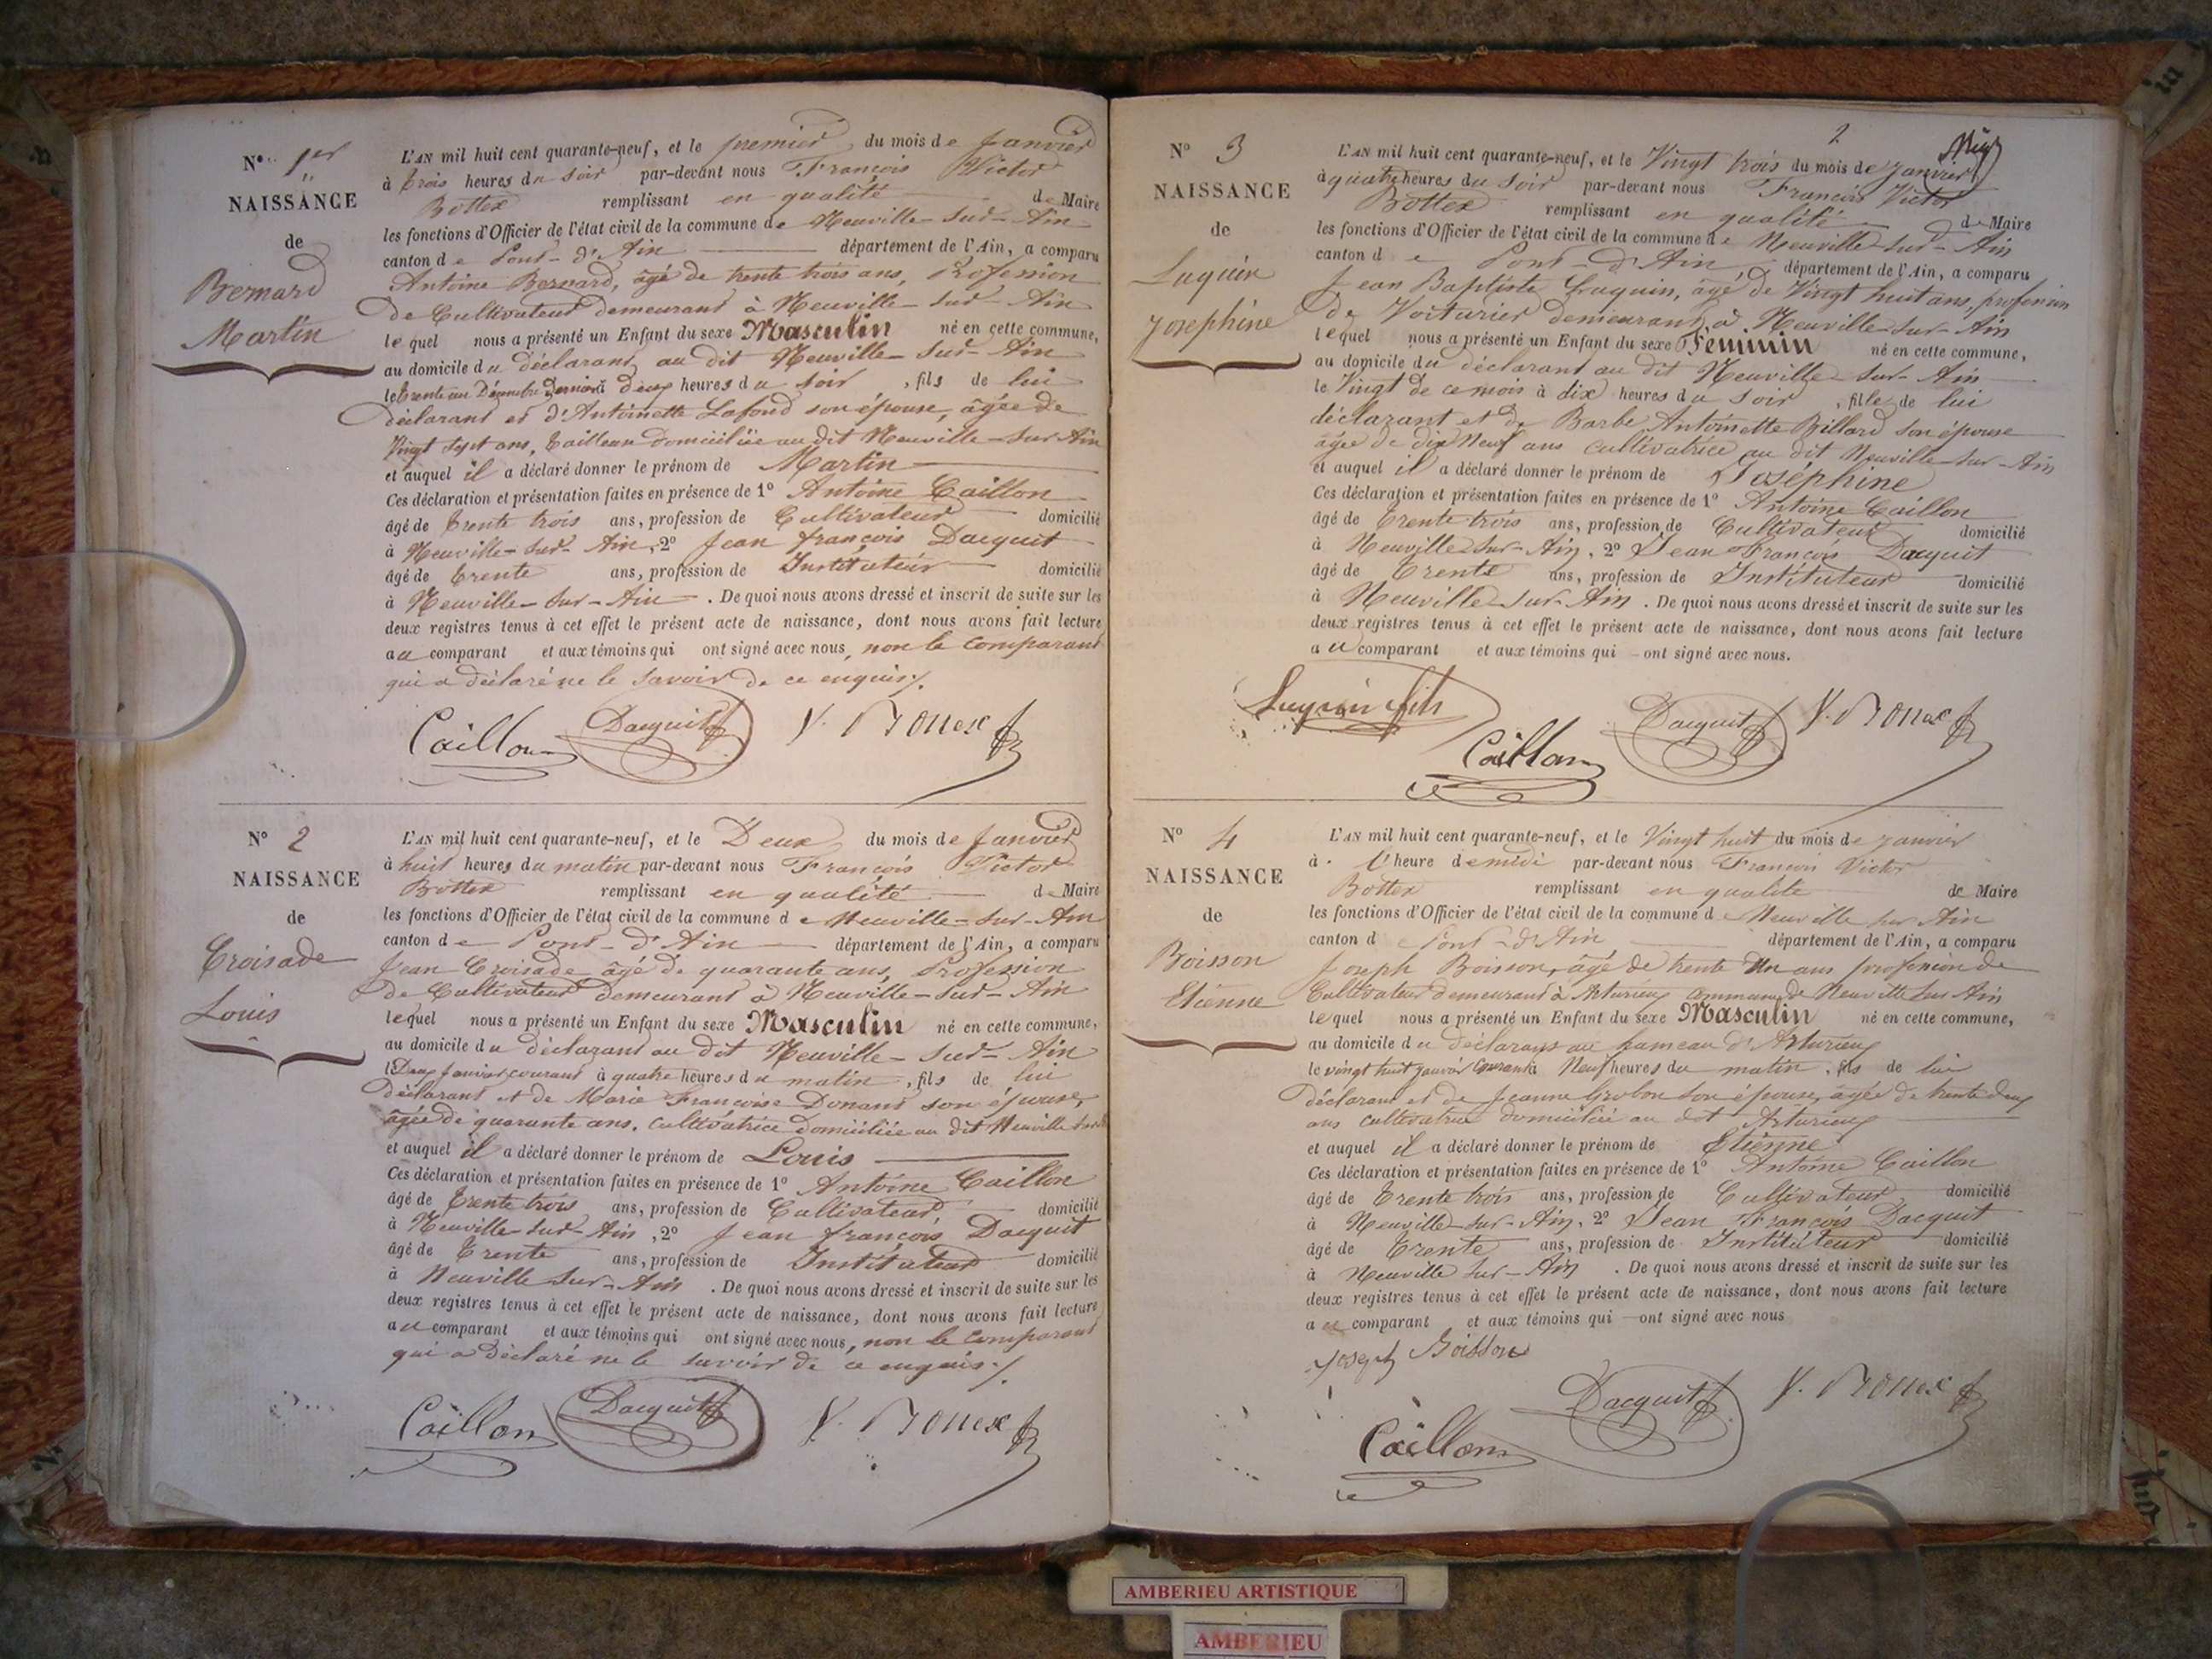 N° 1er
NAISSANCE
de
Bernard
Martin
L'AN mil huit cent quarante-neuf, et le premier du mois de Janvier
à trois heures du soir par-devant nous François Victor
Bottex remplissant en qualité de Maire
les fonctions d'Officier de l'état civil de la commune de Neuville-sur-Ain
canton de Pont-d'Ain département de l'Ain, a comparu
Antoine Bernard, âgé de trente trois ans, Profession
de Cultivateur demeurant à Neuville-sur-Ain
lequel nous a présenté un Enfant du sexe Masculin né en cette commune,
au domicile du déclarant au dit Neuville-sur-Ain
le trente un Décembre dernier à deux heures du soir, fils de lui
déclarant et d'Antoinette Lafond son épouse, âgée de
Vingt sept ans, tailleuse domiciliée au dit Neuville-sur Ain
et auquel il a déclaré donner le prénom de Martin
Ces déclaration et présentation faites en présence de 1° Antoine Caillon
âgé de trente trois ans, profession de Cultivateur domicilié
à Neuville-sur-Ain, 2° Jean françois Dacquit
âgé de trente ans, profession de Instituteur domicilié
à Neuville-sur-Ain. De quoi nous avons dressé et inscrit de suite sur les
deux registres tenus à cet effet le présent acte de naissance, dont nous avons fait lecture
au comparant et aux témoins qui ont signé avec nous, non le comparant
qui a déclaré ne le savoir de ce enquis /.
Caillon Dacquit V. Bottex
N° 2
NAISSANCE
de
Croisade
Louis
L'AN mil huit cent quarante-neuf, et le Deux du mois de Janvier
à huit heures du matin par-devant nous François Victor
Bottex remplissant en qualité de Maire
les fonctions d'Officier de l'état civil de la commune de Neuville-sur-Ain
canton de Pont-d'Ain département de l'Ain, a comparu
Jean Croisade âgé de quarante ans, Profession
de Cultivateur demeurant à Neuville-sur-Ain
lequel nous a présenté un Enfant du sexe Masculin né en cette commune,
au domicile du déclarant au dit Neuville-sur-Ain
le Deux Janvier courant à quatre heures du matin, fils de lui
déclarant et de Marie Françoise Donant son épouse,
âgée de quarante ans, cultivatrice domiciliée au dit Neuville
et auquel il a déclaré donner le prénom de Louis
Ces déclaration et présentation faites en présence de 1° Antoine Caillon
âgé de trente trois ans, profession de Cultivateur domicilié
à Neuville-sur-Ain, 2° Jean françois Dacquit
âgé de trente ans, profession de Instituteur domicilié
à Neuville sur-Ain. De quoi nous avons dressé et inscrit de suite sur les
deux registres tenus à cet effet le présent acte de naissance, dont nous avons fait lecture
au comparant et aux témoins qui ont signé avec nous, non le comparant
qui a déclaré ne le savoir de ce enquis /.
Caillon Dacquit V. Bottex
2
N° 3
NAISSANCE
de
Luquin
Josephine
L'AN mil huit cent quarante-neuf, et le Vingt trois du mois de Janvier
à quatre heures du soir par-devant nous François Victor
Bottex remplissant en qualité de Maire
les fonctions d'Officier de l'état civil de la commune de Neuville-sur-Ain
canton de Pont-d'Ain, département de l'Ain, a comparu
Jean Baptiste Luquin, âgé de Vingt huit ans, profession
de Voiturier demeurant à Neuville-sur-Ain
lequel nous a présenté un Enfant du sexe Feminin né en cette commune,
au domicile du déclarant au dit Neuville-sur-Ain
le Vingt de ce mois à dix heures du soir, fille de lui
déclarant et de Barbe Antoinette Billard son épouse
âgée de dix neuf ans cultivatrice au dit Neuville-sur-Ain
et auquel il a déclaré donner le prénom de Joséphine
Ces déclaration et présentation faites en présence de 1° Antoine Caillon
âgé de trente-trois ans, profession de Cultivateur domicilié
à Neuville sur-Ain, 2° Jean François Dacquit
âgé de trente ans, profession de Instituteur domicilié
à Neuville sur-Ain. De quoi nous avons dressé et inscrit de suite sur les
deux registres tenus à cet effet le présent acte de naissance, dont nous avons fait lecture
au comparant et aux témoins qui ont signé avec nous.
Luquin fils Caillon Dacquit V. Bottex
N° 4
NAISSANCE
de
Boisson
Etienne
L'AN mil huit cent quarante-neuf, et le Vingt huit du mois de Janvier
à l'heure de midi par-devant nous François Victor
Bottex remplissant en qualité de Maire
les fonctions d'Officier de l'état civil de la commune de Neuville sur Ain
canton de Pont-d'Ain département de l'Ain, a comparu
Joseph Boisson, âgé de trente un ans profession de
Cultivateur demeurant à Arturieux commune de Neuville sur Ain
lequel nous a présenté un Enfant du sexe Masculin né en cette commune,
au domicile du déclarant au hameau d'Arturieux
le vingt huit janvier courant à Neuf heures du matin, fils de lui
déclarant et de Jeanne Grobon son épouse, âgée de trente deux
ans cultivatrice domiciliée au dit Arturieux
et auquel il a déclaré donner le prénom de Etienne
Ces déclaration et présentation faites en présence de 1° Antoine Caillon
âgé de trente trois ans, profession de Cultivateur domicilié
à Neuville-sur-Ain, 2° Jean François Dacquit
âgé de trente ans, profession de Instituteur domicilié
à Neuville sur-Ain. De quoi nous avons dressé et inscrit de suite sur les
deux registres tenus à cet effet le présent acte de naissance, dont nous avons fait lecture
au comparant et aux témoins qui ont signé avec nous
Joseph Boisson
Caillon Dacquit V. Bottex
AMBERIEU ARTISTIQUE
AMBERIEU